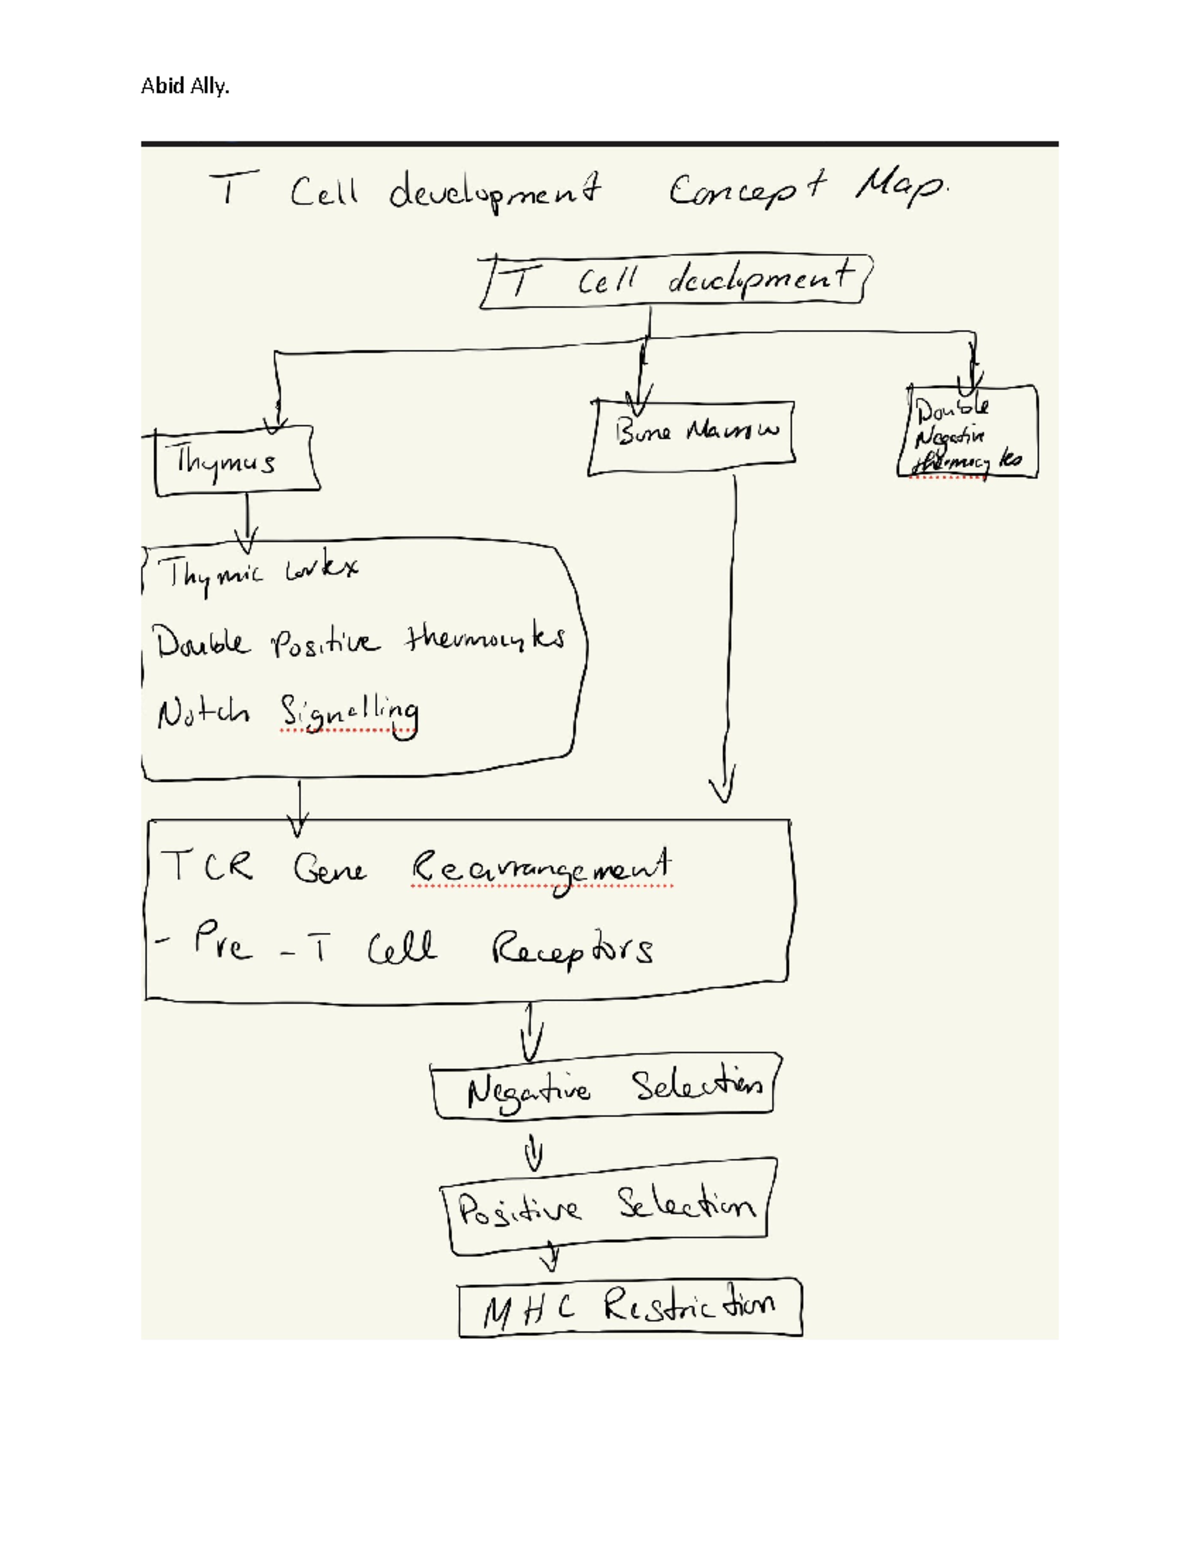 Abid Ally.
T Cell development Concept Map.
T Cell development
Thymus
Bone Marrow
Double
Negative
thermocytes
Thymic Cortex
Double Positive thermocytes
Notch Signalling
TCR Gene Rearrangement
- Pre - T Cell Receptors
Negative Selection
Positive Selection
MHC Restriction